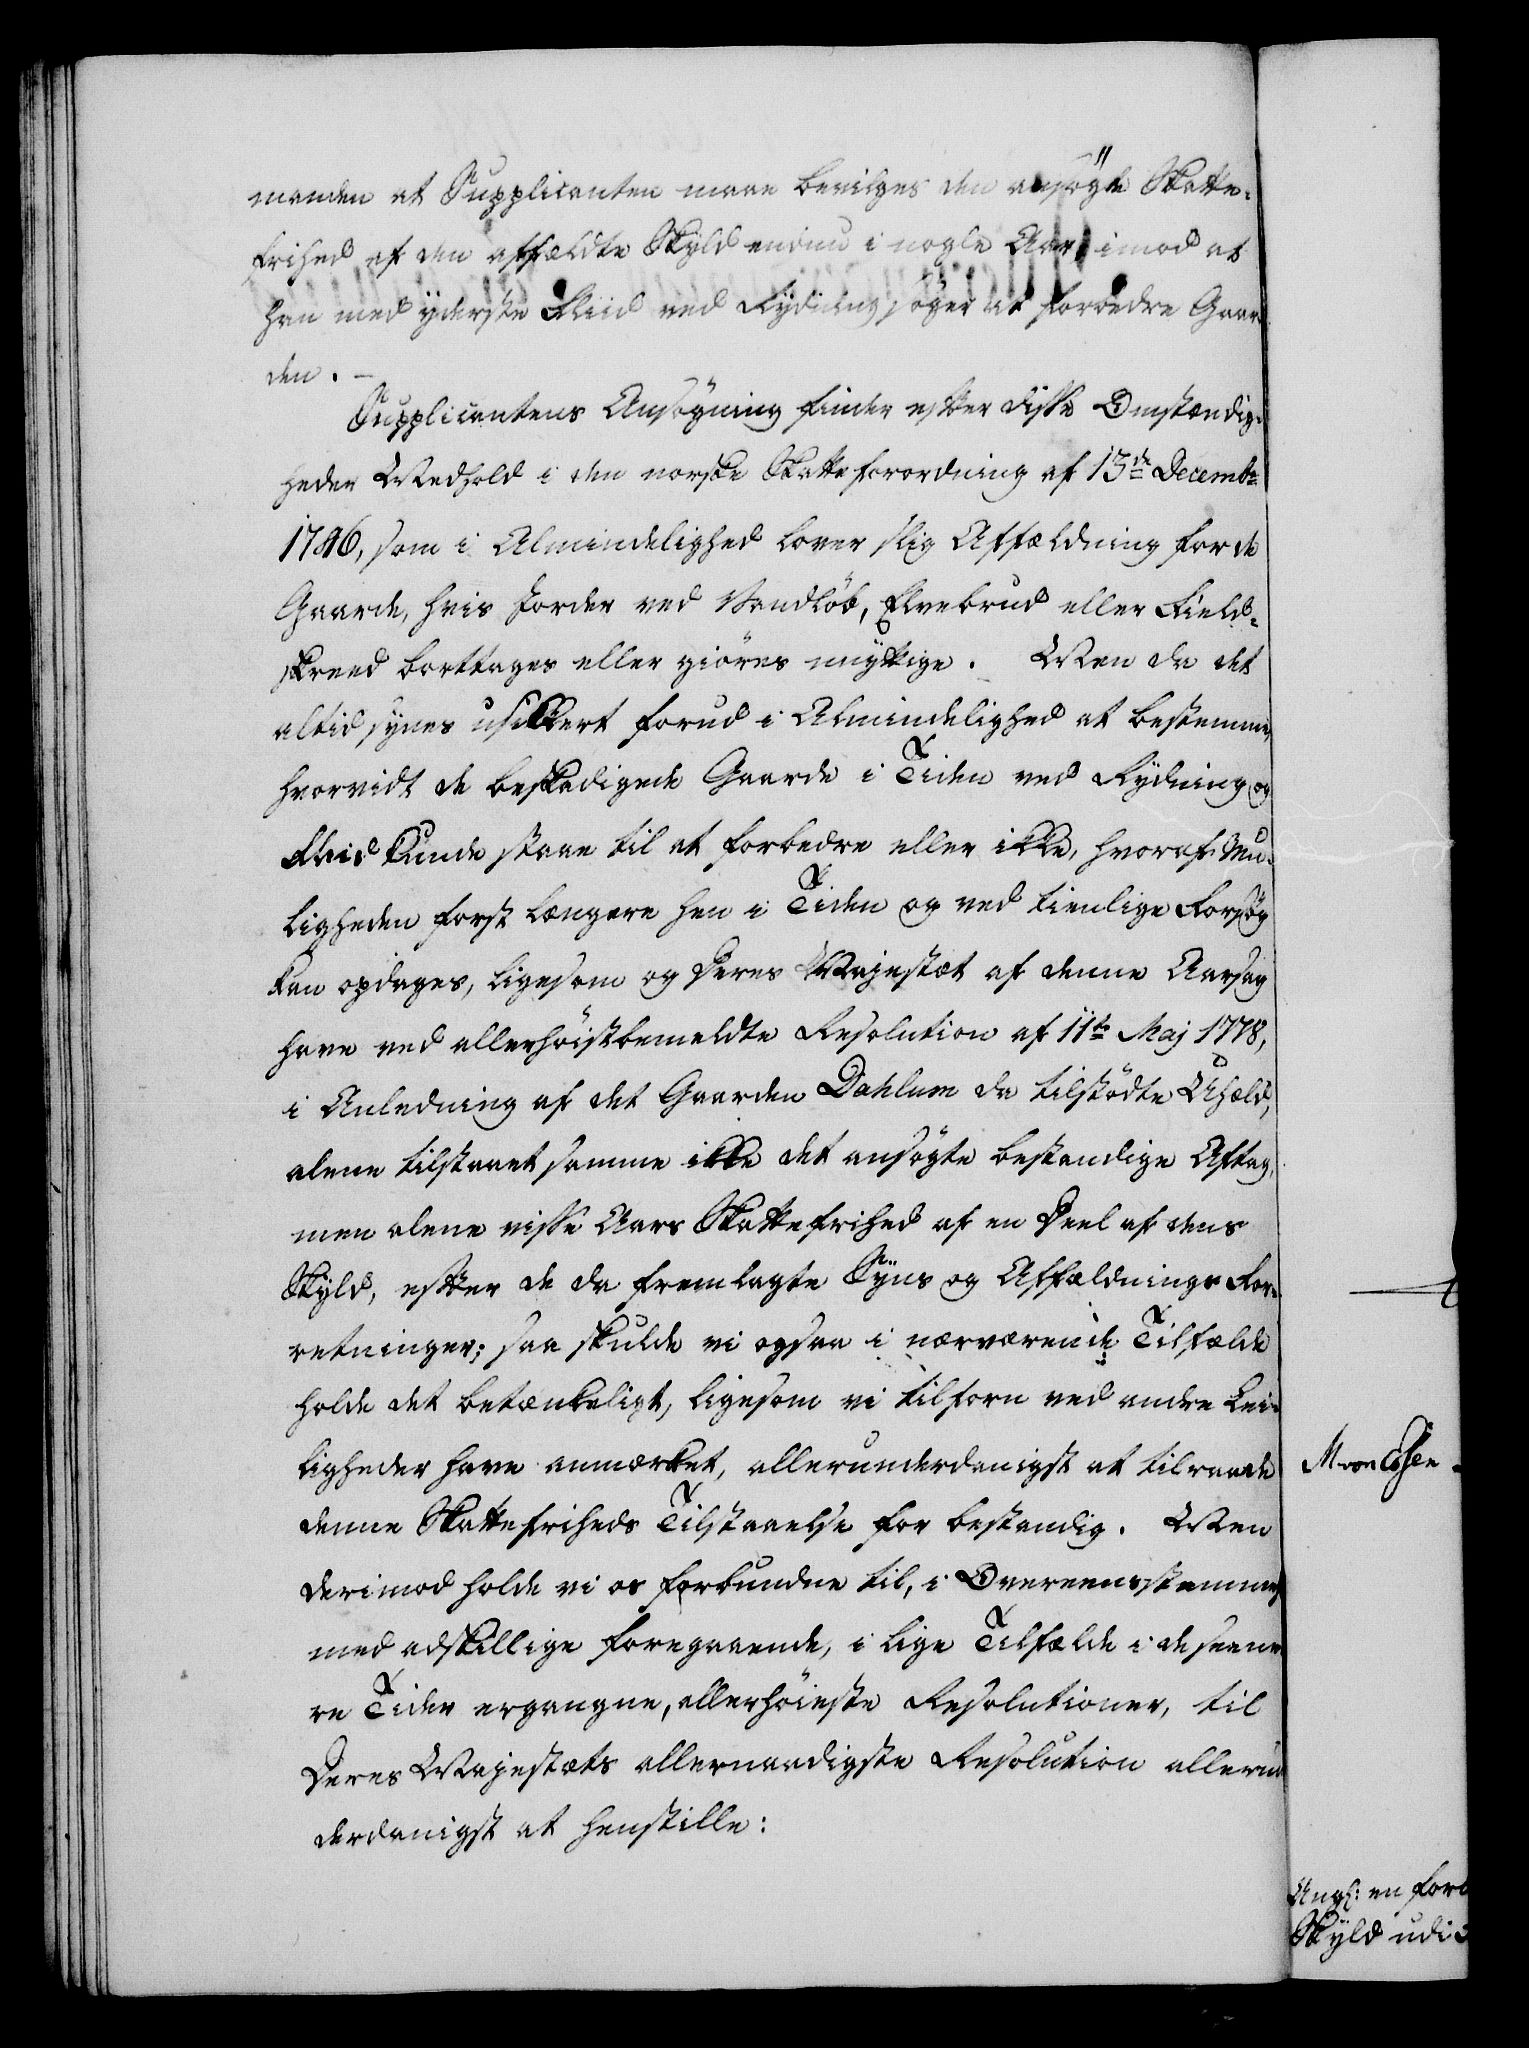 manden at Supplicanten maae bevilges den ansøgte Skatte-
frihed af den affældte Skyld endnu i nogle Aar, imod at
han med yderste Fliid ved Rydning søger at forbedre Gaar-
den. –
Supplicantens Ansøgning finder efter disse Omstændig-
heder Medhold i den norske Skatteforordning af 13de Decembr
1746, som i Almindelighed lover slig Affældning for de
Gaarde, hvis Jorder ved Vandløb, Elvebrud eller Field-
skreed borttages eller giøres unyttige. Men da det
altid synes usikkert forud i Almindelighed at bestemme,
hvorvidt de beskadigede Gaarde i Tiden ved Rydning og
Fliid kunde staae til at forbedre eller ikke, hvoraf Mu-
ligheden først længere hen i Tiden og ved tienlige Forsøg
kan opdages, ligesom og Deres Majestæt af denne Aarsag
have ved allerhøistbemeldte Resolution af 11te Maj 1778,
i Anledning af det Gaarden Dahlum da tilstødte Uheld,
alene tilstaaet samme ikke det ansøgte bestandige Aftag,
men alene visse Aars Skattefrihed af en Deel af dens
Skyld, efter de da fremlagte Syns og Affældnings For-
retninger; saa skulde vi ogsaa i nærværende Tilfælde
holde det betænkeligt, ligesom vi tilforn ved andre Lei-
ligheder have anmærket, allerunderdanigst at tilraade
denne Skattefriheds Tilstaaelse for bestandig. Men
derimod holde vi os forbundne til, i Overeensstemmelse
med adskillige foregaaende, i lige Tilfælde i de seene-
re Tider ergangne, allerhøieste Resolutioner, til
Deres Majestæts allernaadigste Resolution allerun-
derdanigst at henstille:
M von Essen
Angl: en forb
Skyld udi